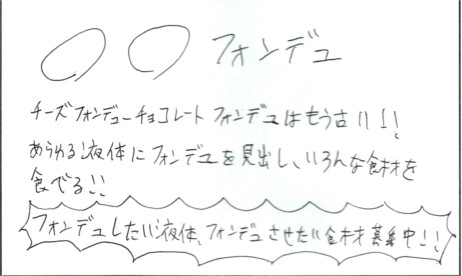 〇〇フォンデュ
チーズフォンデューチョコレートフォンデュはもう古い!!
あらゆる液体にフォンデュを見出し、いろんな食材を
食べる!!
フォンデュしたい液体、フォンデュさせたい食材募集中!!